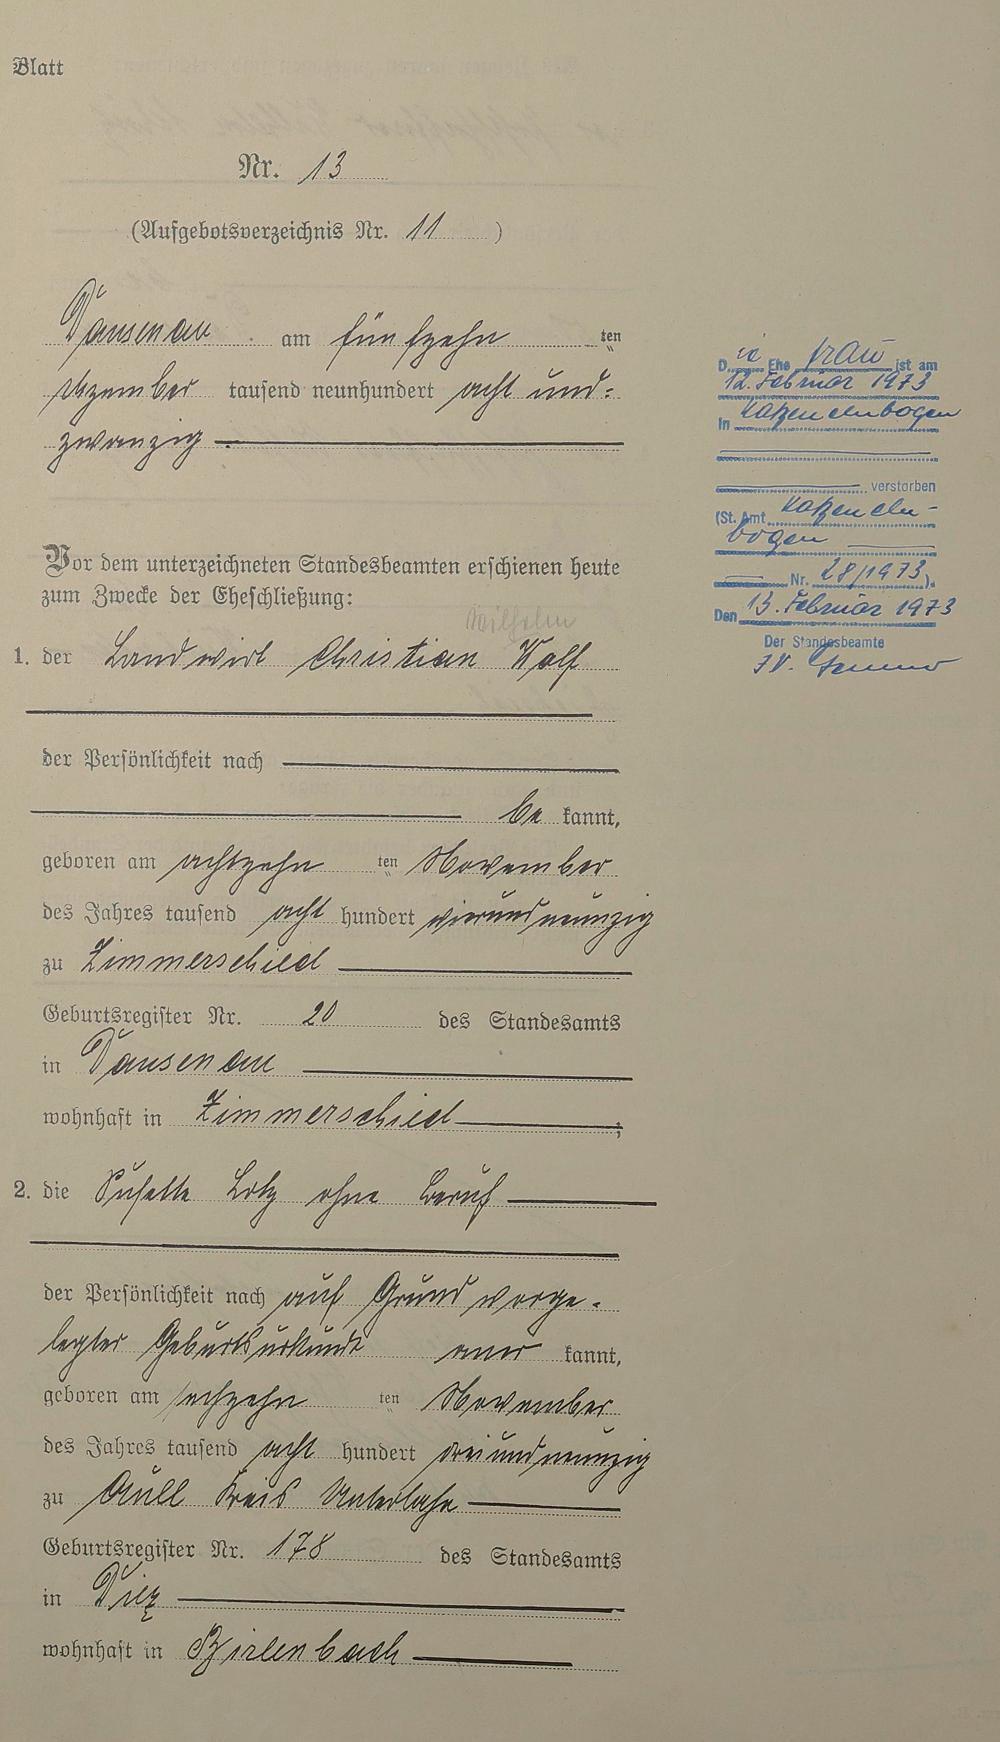 Blatt
Nr. 13
(Aufgebotsverzeichnis Nr. 11 )
Dausenau am fünfzehn ten
Dezember tausend neunhundert acht und=
zwanzig
Vor dem unterzeichneten Standesbeamten erschienen heute
zum Zwecke der Eheschließung:
Wilhelm
1. der Landwirt Christian Wolf
der Persönlichkeit nach
be kannt,
geboren am achtzehn ten November
des Jahres tausend acht hundert vierundneunzig
zu Zimmerschied
Geburtsregister Nr. 20 des Standesamts
in Dausenau
wohnhaft in Zimmerschied ;
2. die Susette Lotz ohne Beruf
der Persönlichkeit nach auf Grund vorge-
legter Geburtsurkunde aner kannt,
geboren am sechzehn ten November
des Jahres tausend acht hundert dreiundneunzig
zu Aull Kreis Unterlahn
Geburtsregister Nr. 178 des Standesamts
in Diez
wohnhaft in Birlenbach
Die Ehe frau ist am
12. Februar 1973
in Katzenelnbogen
verstorben
(St. Amt Katzeneln-
bogen
Nr. 28/1973).
Den 13. Februar 1973
Der Standesbeamte
J.V.